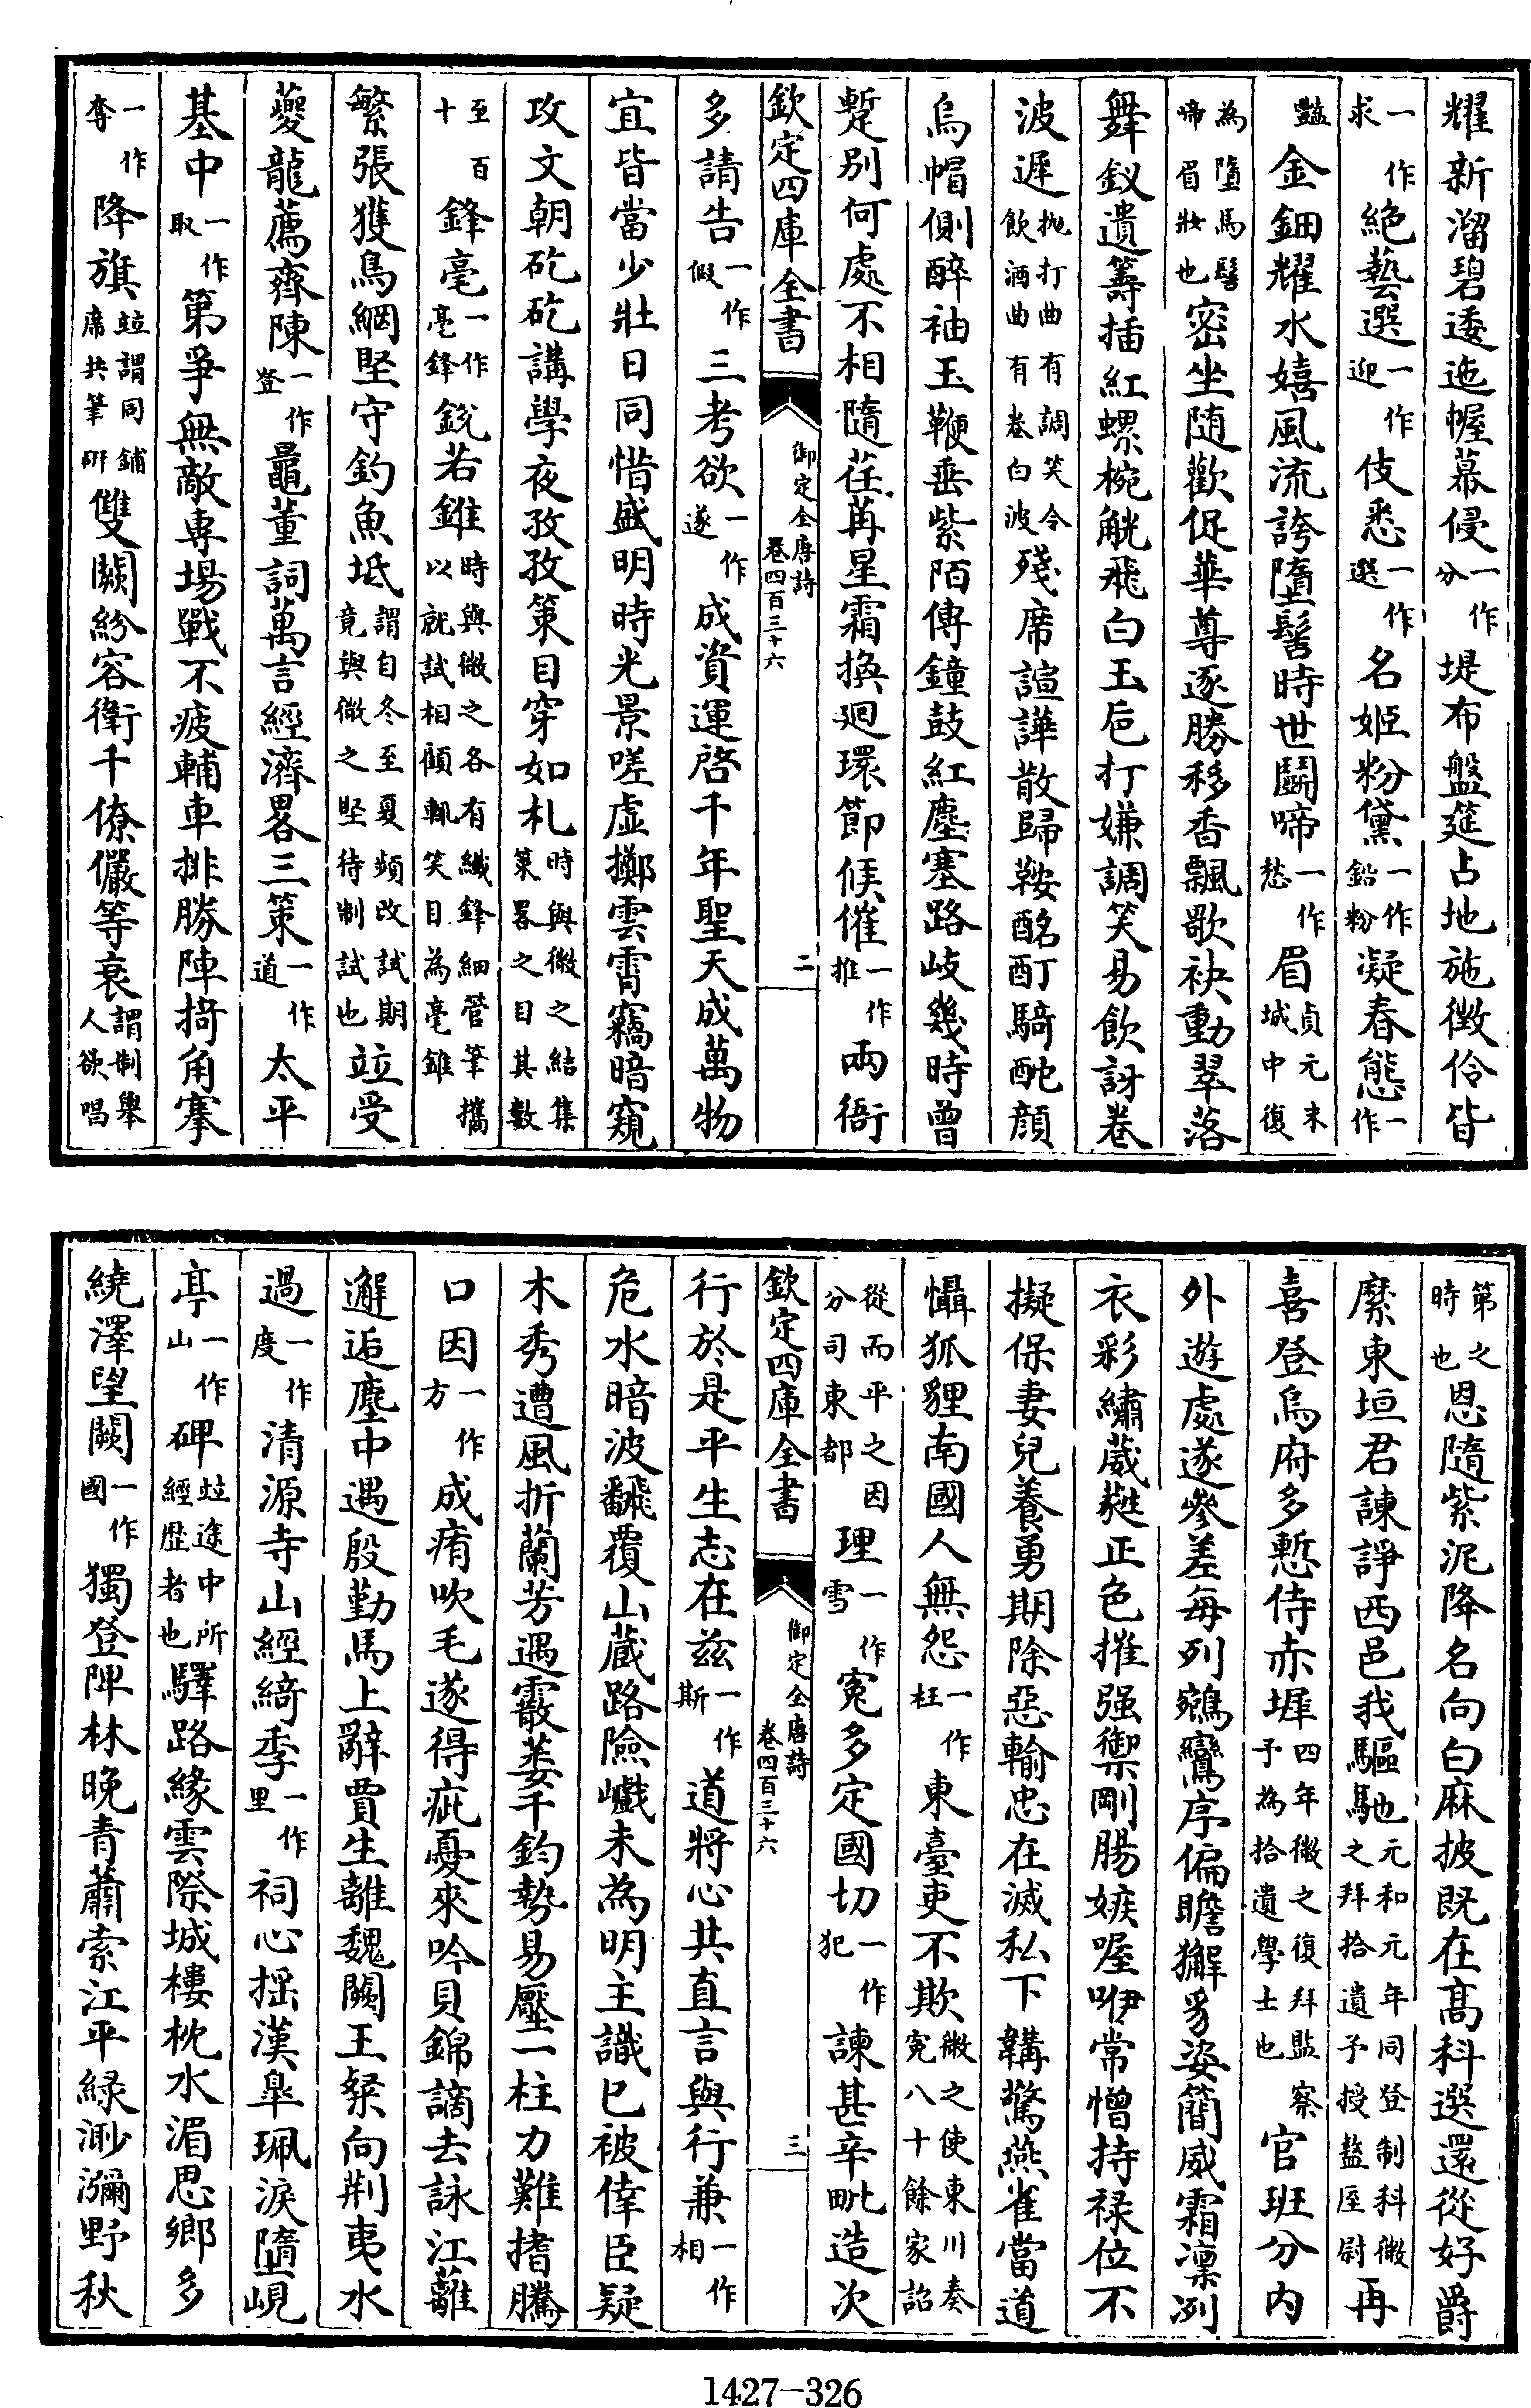 耀新溜碧逶迤幄幕侵一作分堤布盤筵占地施徵伶皆
一作求絶藝選一作迎伎悉一作選名姬粉黛一作鉛粉凝春態一作
豔金鈿耀水嬉風流誇墮髻時世鬭啼一作愁眉貞元末城中復
為墮馬髻啼眉妝也密坐隨歡促華尊逐勝移香飄歌袂動翠落
舞釵遺籌插紅螺椀觥飛白玉巵打嫌調笑易飲訝卷
波遲抛打曲有調笑令飲酒曲有卷白波殘席諠譁散歸鞍酩酊騎酡顔
烏帽側醉袖玉鞭垂紫陌傳鐘鼓紅塵塞路岐幾時曾
蹔别何處不相隨荏苒星霜換廻環節候催一作推兩衙
欽定四庫全書 御定全唐詩卷四百三十六 二
多請告一作假三考欲一作遂成資運啓千年聖天成萬物
宜皆當少壯日同惜盛明時光景嗟虚擲雲霄竊暗窺
攻文朝矻矻講學夜孜孜策目穿如札時與微之結集策畧之目其數
至百十鋒毫一作毫鋒鋭若錐時與微之各有纎鋒細管筆攜以就試相顧輒笑目為毫錐
繁張獲鳥網堅守釣魚坻謂自冬至夏頻改試期竟與微之堅待制試也竝受
夔龍薦齊陳一作登鼂董詞萬言經濟畧三策一作道太平
基中一作取第爭無敵專場戰不疲輔車排勝陣掎角搴
一作㩻降旗竝謂同鋪席共筆硏雙闕紛容衛千僚儼等衰謂制舉人欲唱
第之時也恩隨紫泥降名向白麻披既在髙科選還從好爵
縻東垣君諫諍西邑我驅馳元和元年同登制科微之拜拾遺予授盩厔尉再
喜登烏府多慙侍赤墀四年微之復拜監察予為拾遺學士也官班分内
外遊處遂參差每列鵷鸞序偏瞻獬豸姿簡威霜凛冽
衣彩繡葳蕤正色摧强禦剛腸嫉喔咿常憎持禄位不
擬保妻兒養勇期除惡輸忠在滅私下韝驚燕雀當道
懾狐貍南國人無怨一作枉東臺吏不欺微之使東川奏寃八十餘家詔
從而平之因分司東都理一作雪寃多定國切一作犯諫甚辛毗造次
欽定四庫全書 御定全唐詩卷四百三十六 三
行於是平生志在兹一作斯道將心共直言與行兼一作相
危水暗波飜覆山藏路險巇未為明主識已被倖臣疑
木秀遭風折蘭芳遇霰萎千鈞勢易壓一柱力難搘騰
口因一作方成痏吹毛遂得疵憂來吟貝錦謫去詠江蘺
邂逅塵中遇殷勤馬上辭賈生離魏闕王粲向荆夷水
過一作度清源寺山經綺季一作里祠心揺漢皐珮淚墮峴
亭一作山碑竝途中所經歴者也驛路緣雲際城樓枕水湄思鄉多
繞澤望闕一作國獨登陴林晚青蕭索江平緑渺瀰野秋
1427-326